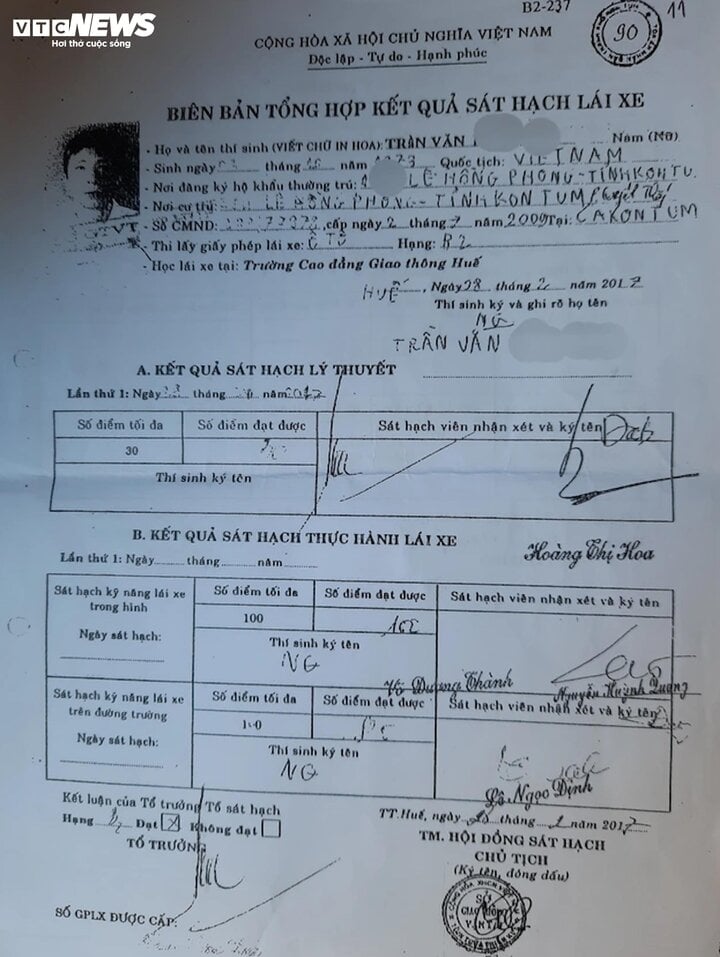 VTC NEWS
Hơi thở cuộc sống
B2-237
11
90
CỘNG HÒA XÃ HỘI CHỦ NGHĨA VIỆT NAM
Độc lập - Tự do - Hạnh phúc
BIÊN BẢN TỔNG HỢP KẾT QUẢ SÁT HẠCH LÁI XE
- Họ và tên thí sinh (VIẾT CHỮ IN HOA): TRẦN VĂN Nam (Nữ)
- Sinh ngày tháng năm Quốc tịch: VIETNAM
- Nơi đăng ký hộ khẩu thường trú: LÊ HỒNG PHONG - TỈNH KON TUM
- Nơi cư trú: LÊ HỒNG PHONG - TỈNH KON TUM
- Số CMND: cấp ngày 2 tháng 7 năm 2009 Tại: CA KON TUM
- Thi lấy giấy phép lái xe: Ô TÔ Hạng: B2
- Học lái xe tại: Trường Cao đẳng Giao thông Huế
HUẾ, Ngày 28 tháng 2 năm 2017
Thí sinh ký và ghi rõ họ tên
TRẦN VĂN
A. KẾT QUẢ SÁT HẠCH LÝ THUYẾT
Lần thứ 1: Ngày tháng năm 2017
Số điểm tối đa Số điểm đạt được Sát hạch viên nhận xét và ký tên Đạt
30
Thí sinh ký tên
B. KẾT QUẢ SÁT HẠCH THỰC HÀNH LÁI XE
Hoàng Thị Hoa
Lần thứ 1: Ngày tháng năm
Sát hạch kỹ năng lái xe trong hình
Số điểm tối đa Số điểm đạt được Sát hạch viên nhận xét và ký tên
100
Ngày sát hạch:
Thí sinh ký tên
Võ Dương Thành Nguyễn Huỳnh Quang
Sát hạch kỹ năng lái xe trên đường trường
Số điểm tối đa Số điểm đạt được Sát hạch viên nhận xét và ký tên
100
Ngày sát hạch:
Thí sinh ký tên
Lê Ngọc Định
Kết luận của Tổ trưởng Tổ sát hạch
Hạng Đạt X Không đạt
TỔ TRƯỞNG
TT.Huế, ngày tháng năm 2017
TM. HỘI ĐỒNG SÁT HẠCH
CHỦ TỊCH
(Ký tên, đóng dấu)
SỐ GPLX ĐƯỢC CẤP:
SỞ